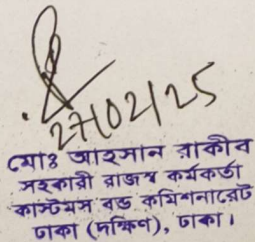 27/02/25
মোঃ আহসান রাকীব
সহকারী রাজস্ব কর্মকর্তা
কাস্টমস বন্ড কমিশনারেট
ঢাকা (দক্ষিণ), ঢাকা।